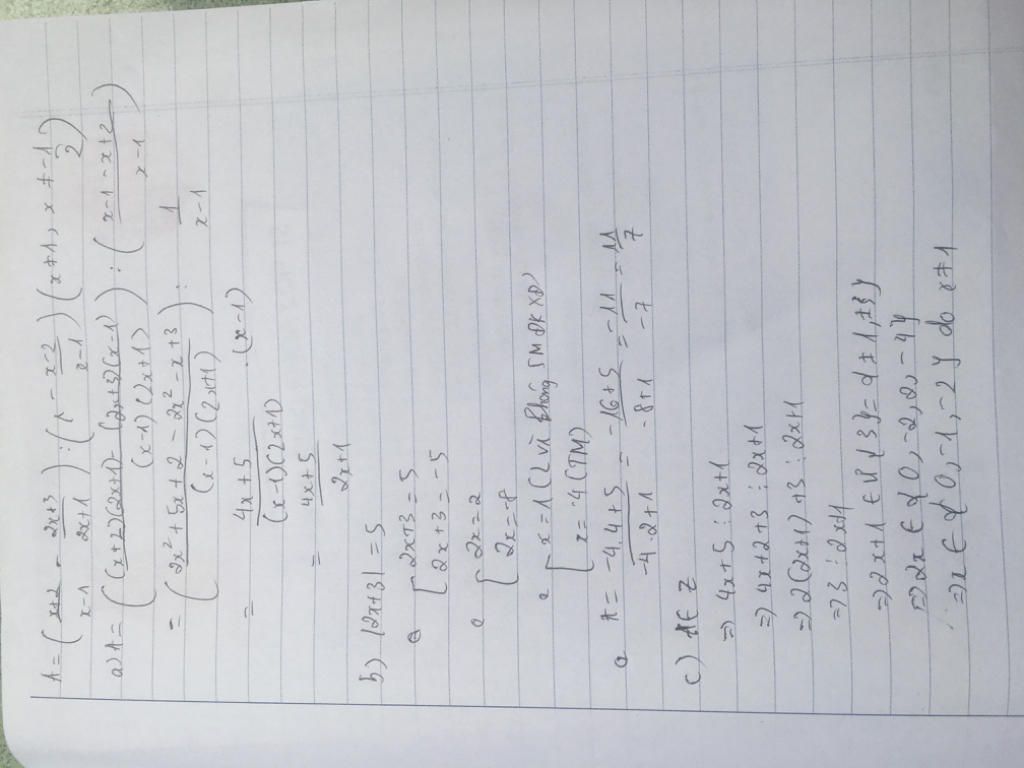 A = (x+2/x-1 - 2x+3/2x+1) : (1 - x-2/x-1) (x ≠ 1, x ≠ -1/2)
a) A = ((x+2)(2x+1) - (2x+3)(x-1)/(x-1)(2x+1)) : (x-1-x+2/x-1)
= (2x²+5x+2-2x²-x+3/(x-1)(2x+1)) : 1/x-1
= 4x+5/(x-1)(2x+1) . (x-1)
= 4x+5/2x+1
b) |2x+3| = 5
[2x+3 = 5
2x+3 = -5
[2x = 2
2x = -8
[x = 1 (L vì không TM ĐKXĐ)
x = -4 (TM)
A = -4.4+5/-4.2+1 = -16+5/-8+1 = -11/-7 = 11/7
c) A ∈ Z
⇒ 4x+5 ⋮ 2x+1
⇒ 4x+2+3 ⋮ 2x+1
⇒ 2(2x+1)+3 ⋮ 2x+1
⇒ 3 ⋮ 2x+1
⇒ 2x+1 ∈ Ư{3} = {±1, ±3}
⇒ 2x ∈ {0, -2, 2, -4}
⇒ x ∈ {0, -1, -2} do x ≠ 1